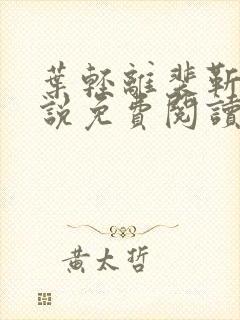 葉輕離裴靳
說免費閱讀
黃太哲